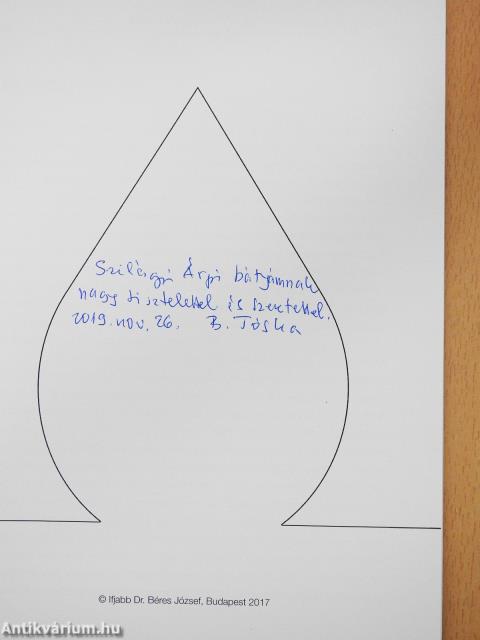 Szilágyi Árpi bátyámnak
nagy tisztelettel és szeretettel.
2019. nov. 26. B. Jóska
© Ifjabb Dr. Béres József, Budapest 2017
Antikvárium.hu